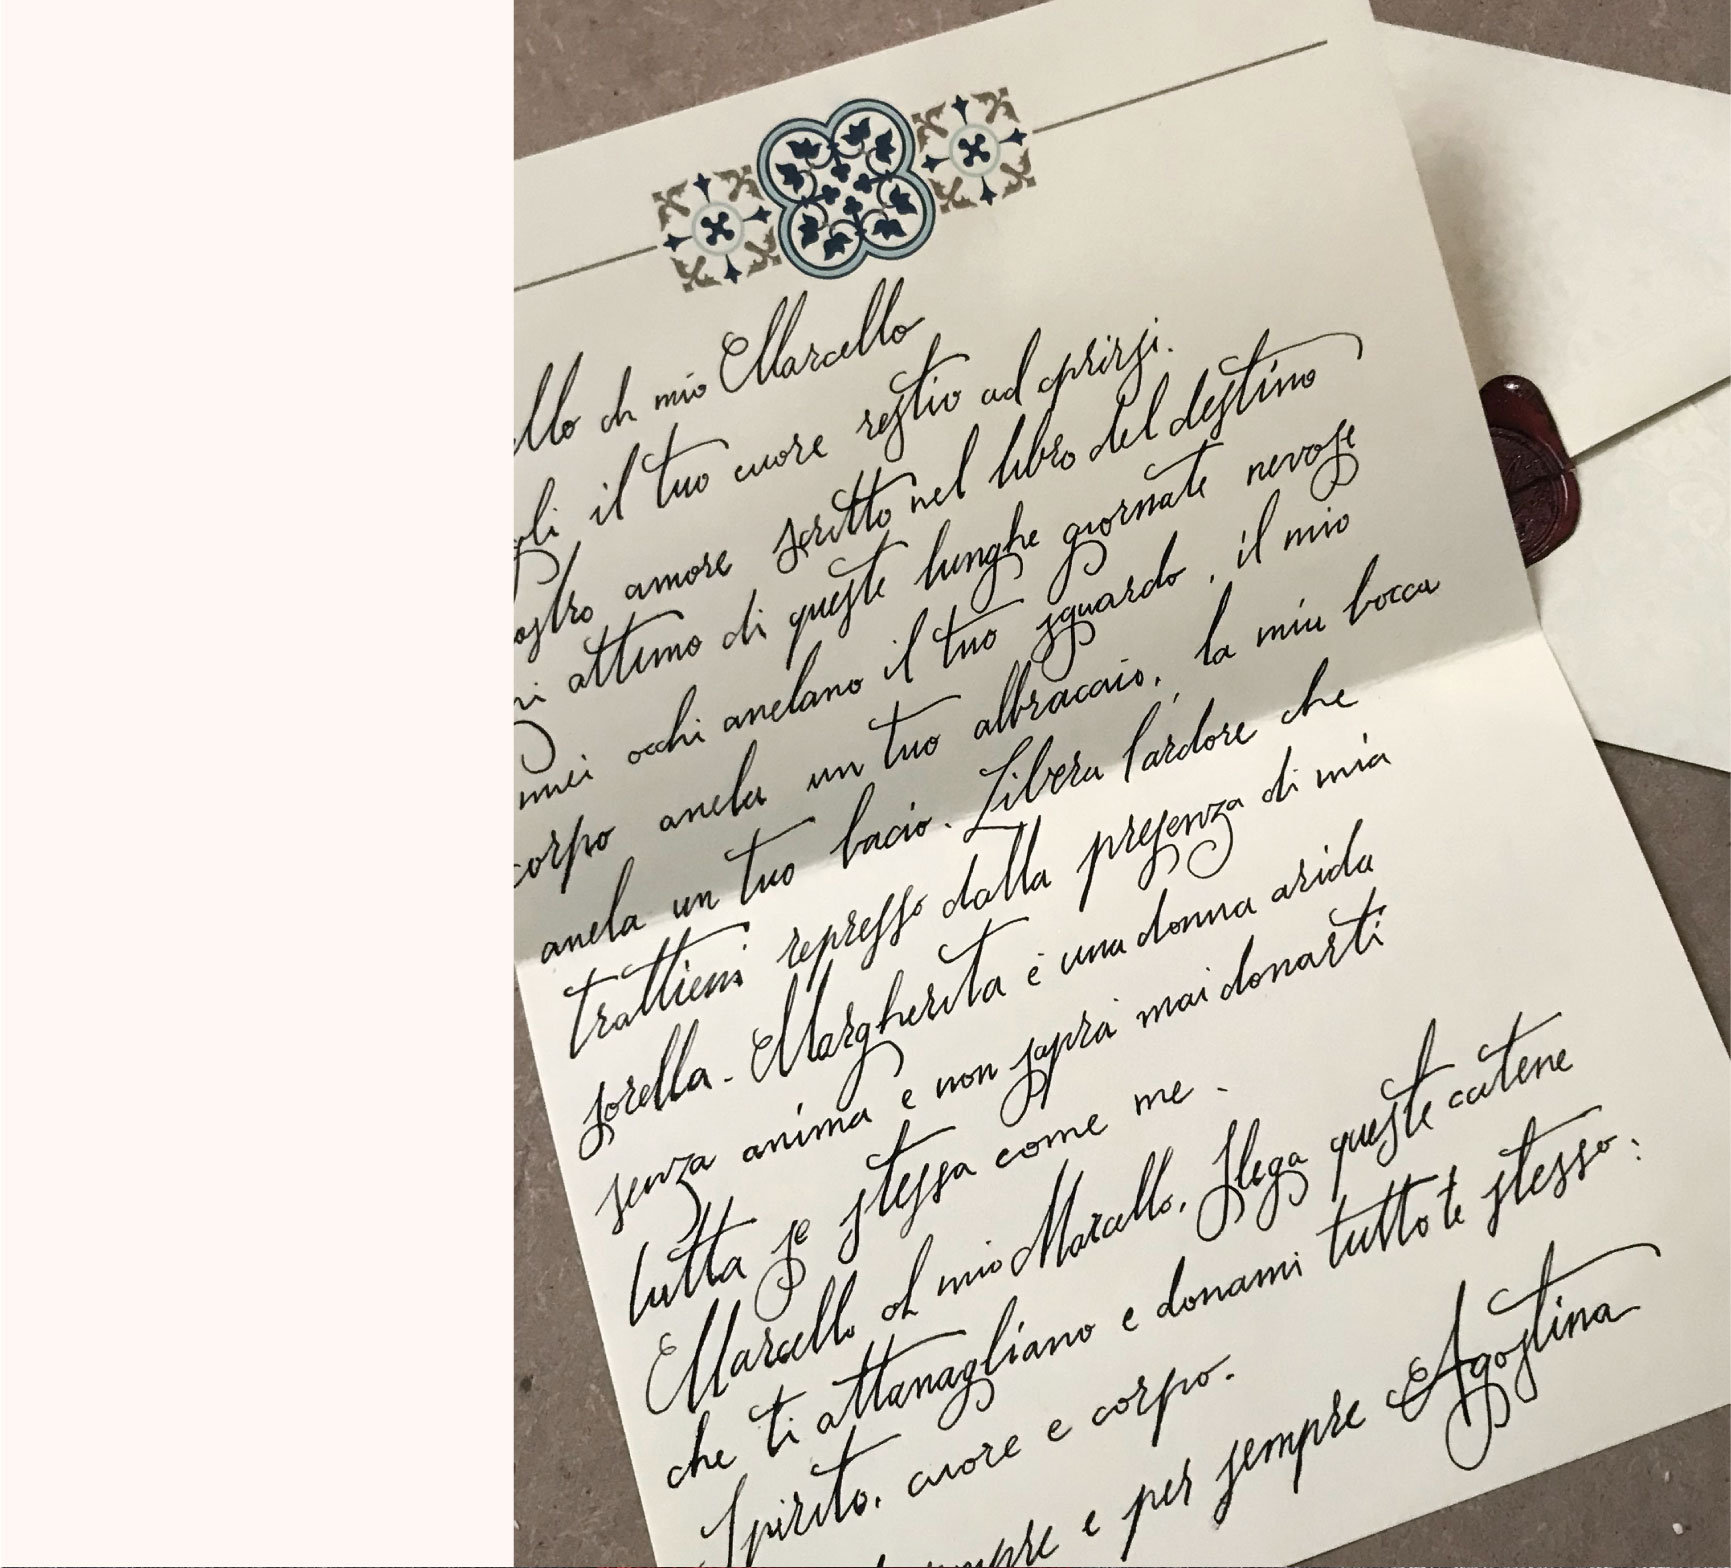 oh mio Marcello
il tuo cuore restio ad aprirsi.
amore scritto nel libro del destino
attimo di queste lunghe giornate nevose
miei occhi anelano il tuo sguardo, il mio
corpo anela un tuo abbraccio, la mia bocca
anela un tuo bacio. Libera l'ardore che
trattieni represso dalla presenza di mia
sorella. Margherita è una donna arida
senza anima e non saprà mai donarti
tutta se stessa come me.
Marcello oh mio Marcello, slega queste catene
che ti attanagliano e donami tutto te stesso:
Spirito, cuore e corpo.
e per sempre Agostina